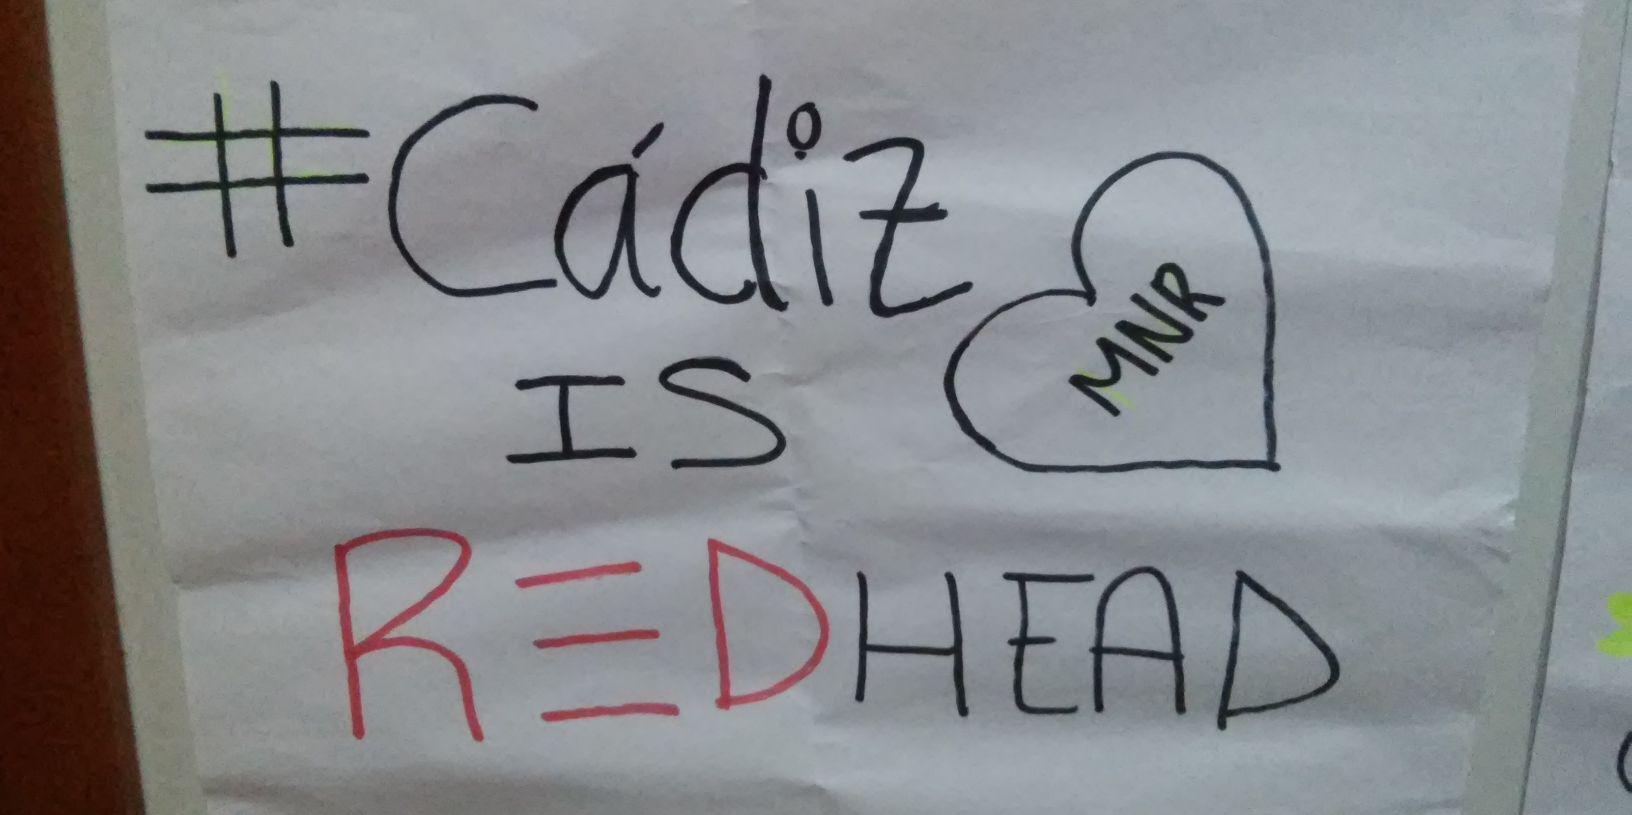 #Cádiz
MNR
IS
REDHEAD